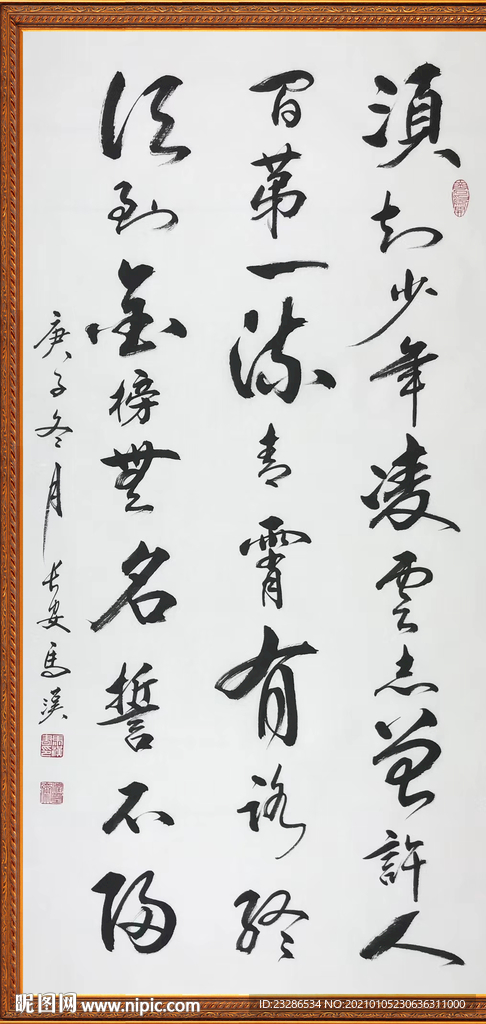 須知少年凌雲志曾許人
間第一流青霄有路終
須到金榜無名誓不歸
庚子冬月長安馬漢
昵图网 www.nipic.com
ID:23286534 NO:20210105230636311000